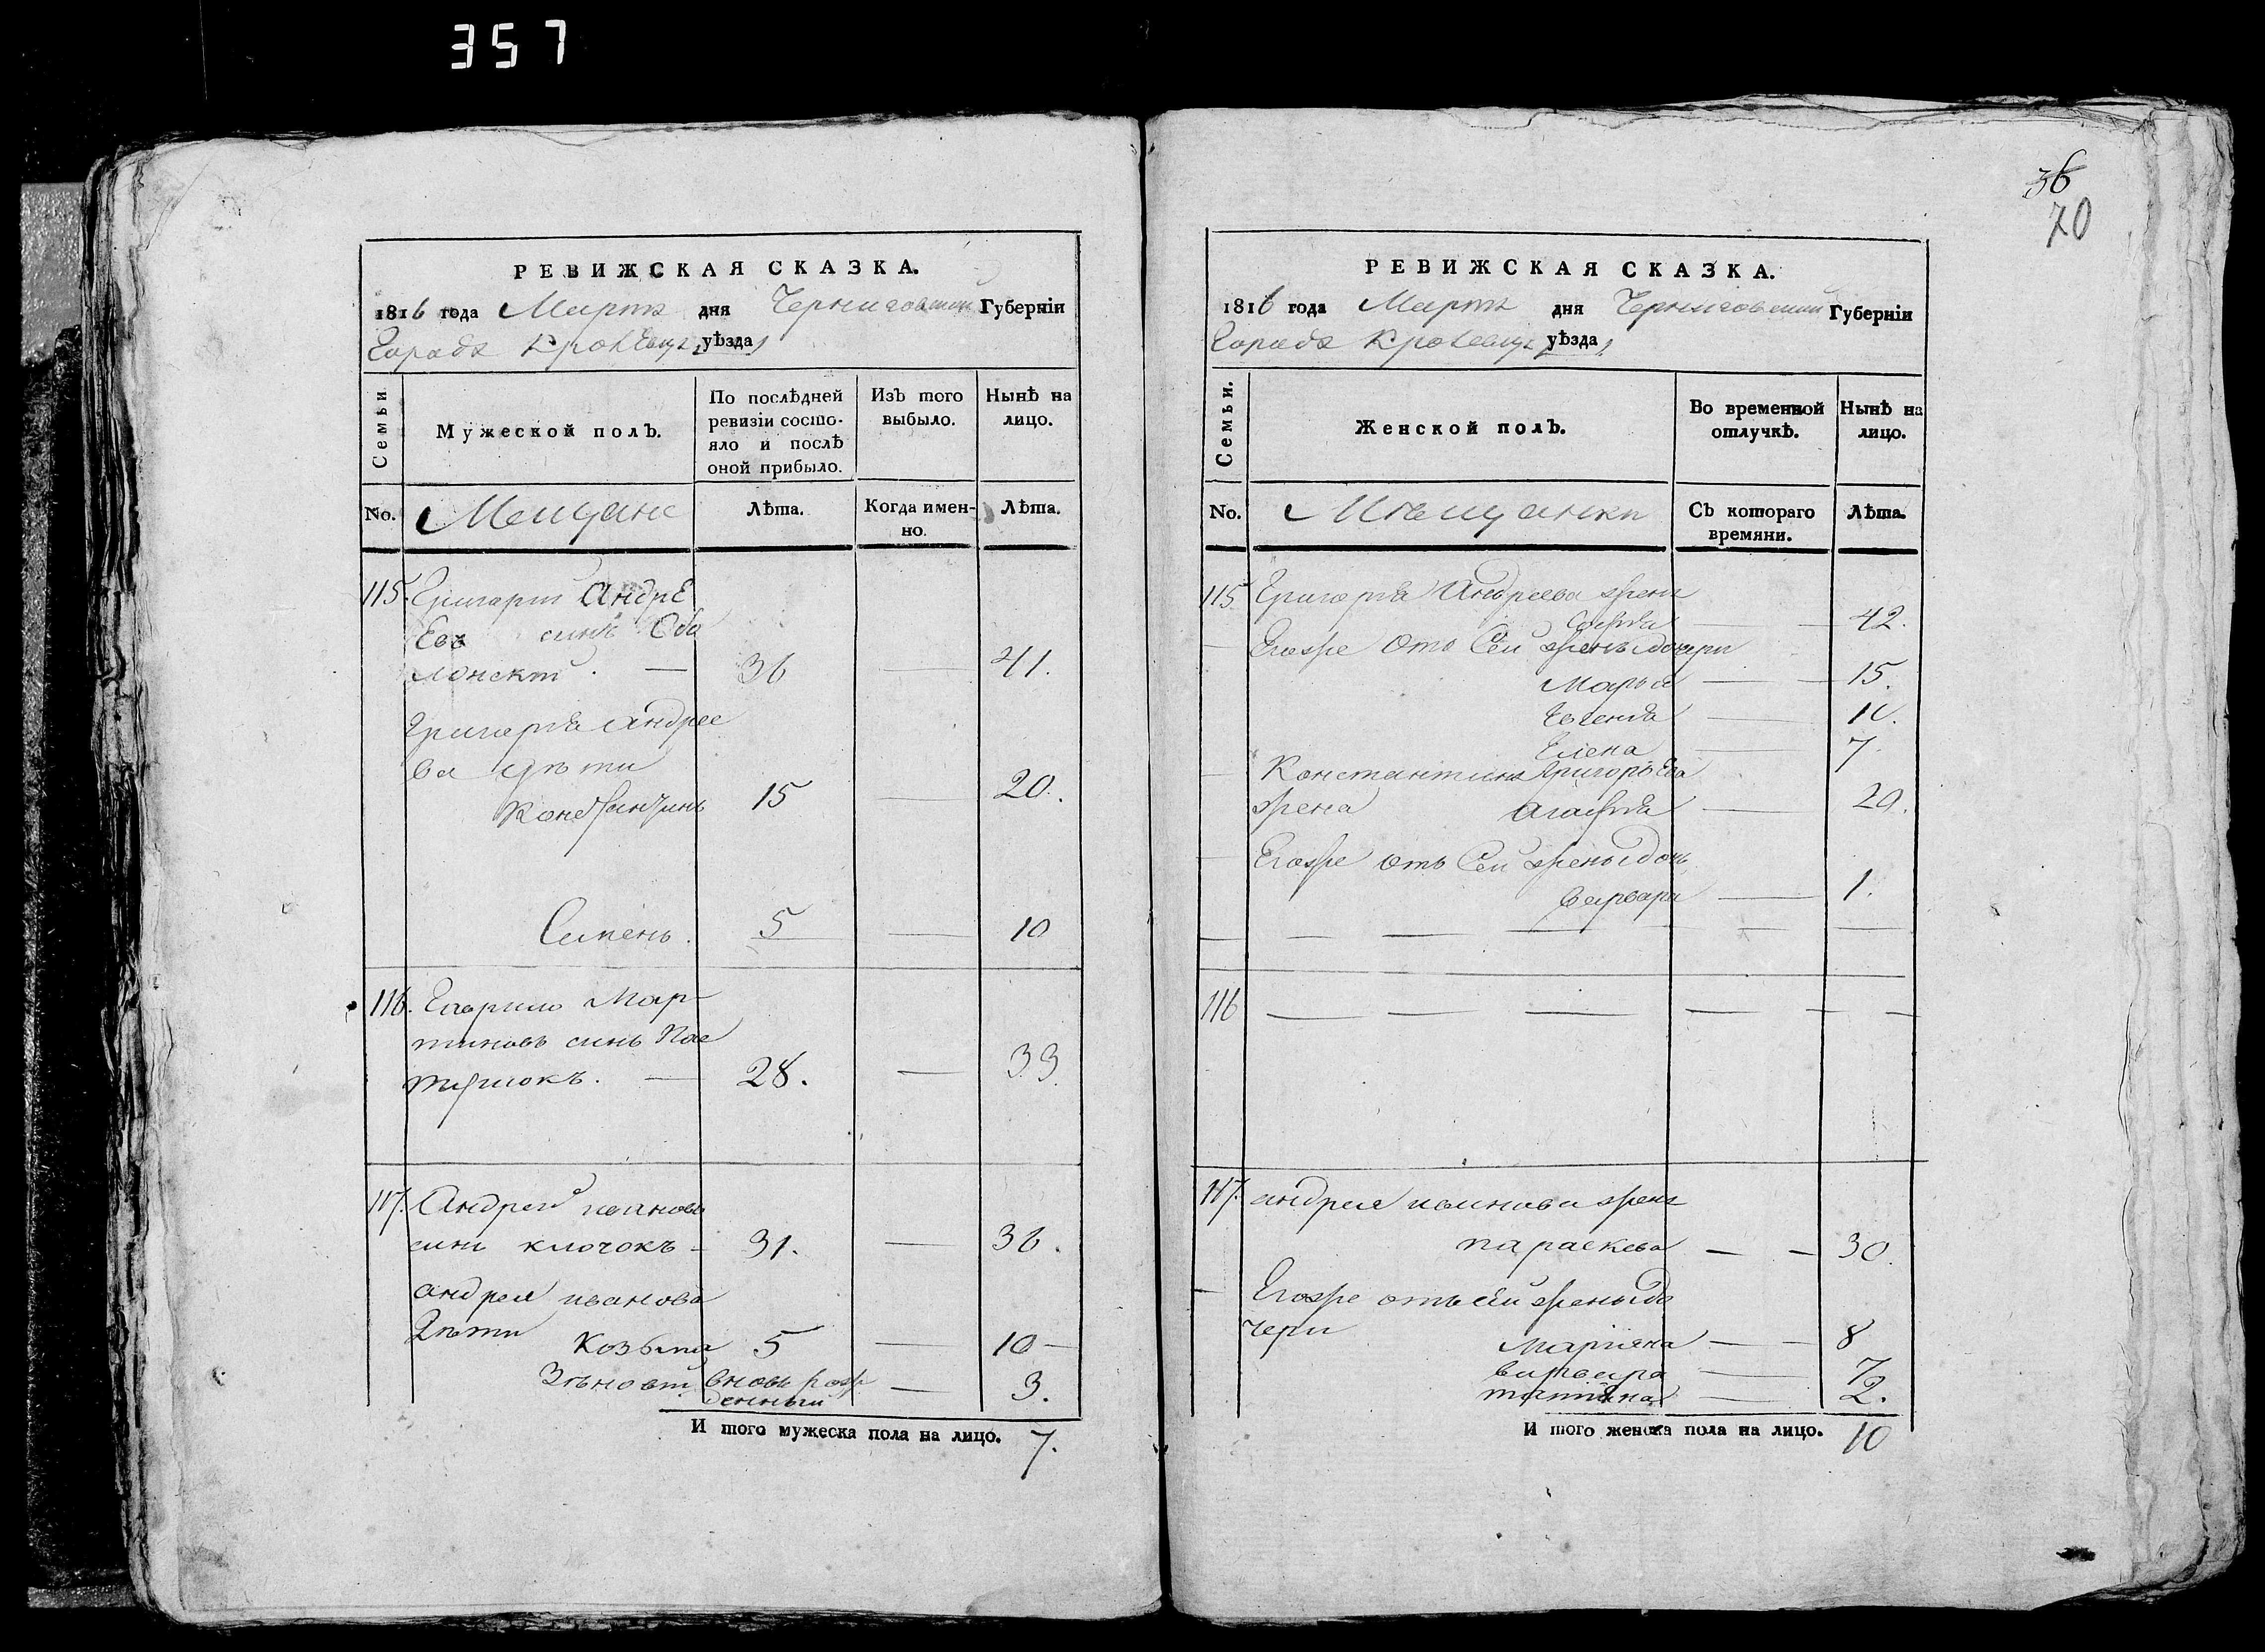 357
36
70
РЕВИЖСКАЯ СКАЗКА.
1816 года Мартъ дня Черниговской Губерніи
Города Кролевца уѣзда
Семьи.
Мужеской полЪ.
По послѣдней ревизіи состо-
яло и послѣ оной прибыло.
ИзЪ того выбыло.
НынѢ на лицо.
No. Мещане
ЛѢта.
Когда имен-
но.
ЛѢта.
115. Григорій Андре
евъ синъ
36 — 41.
Григорія Андрее
ва дѣти
Константинъ 15 — 20.
Семенъ. 5 — 10
116. Гаврило Мар-
тиновъ синъ Пас
28. — 33.
117. Андрей ивановъ
синъ клочокъ - 31. — 36.
андрея иванова
Дѣти
Козьма 5 — 10 -
Зѣновій вновь рож
денный — 3.
И того мужеска пола на лицо. 7.
РЕВИЖСКАЯ СКАЗКА.
1816 года Мартъ дня Черниговской Губерніи
Города Кролевца уѣзда
Семьи.
Женской полЪ.
Во временной отлучкѢ.
НынѢ на лицо.
No. Мѣщанки
СЪ котораго времяни.
ЛѢта.
115. Григорія Андреева жена
Софія — 42.
Егоже отъ Сей жены дочери
Марья — 15.
Евгенія — 10.
Елена — 7.
Константина Григорьева
жена Агафія — 20.
Егоже отъ Сей жены дочь
Варвара — 1.
116 — — — — — —
117. андрея иванова жена
параскева — — 30.
Егоже отъ сей жены до
чери
Маріяна — — 8
варвара — 7
татіяна — 2.
И того женска пола на лицо. 10